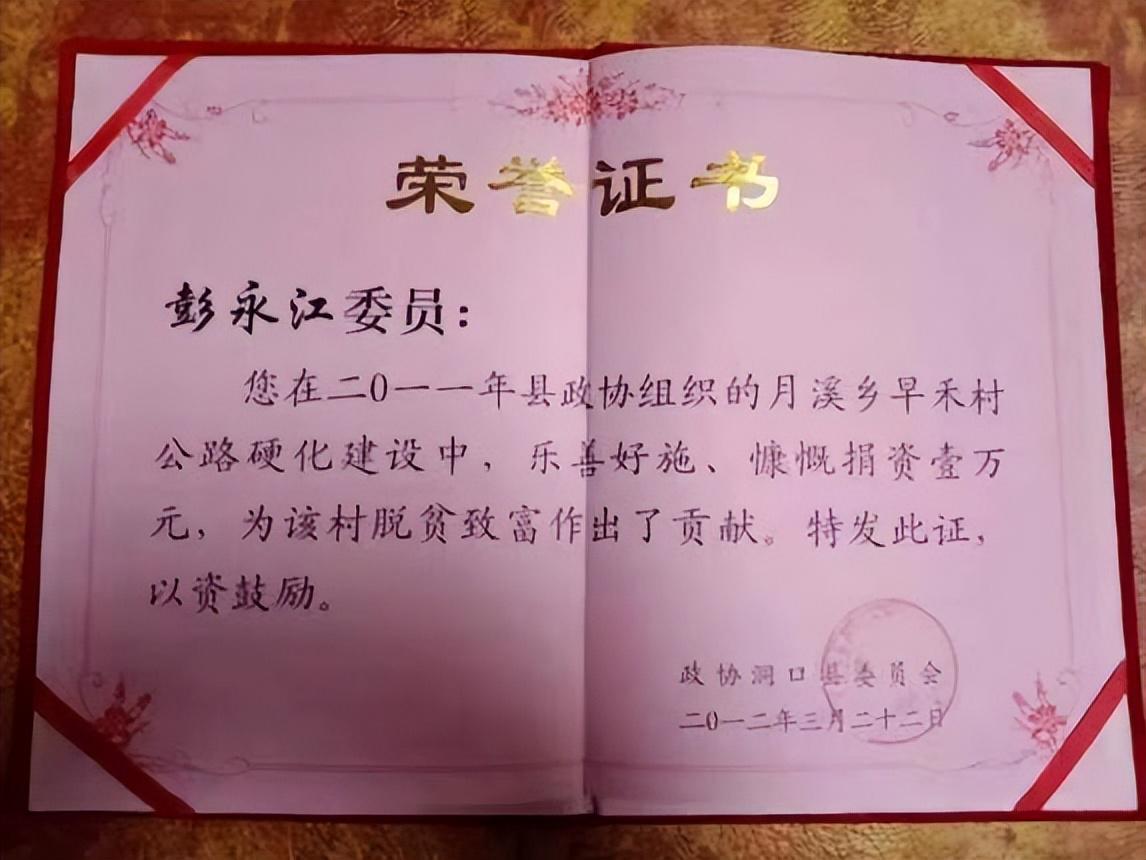 荣誉证书
彭永江委员：
您在二0一一年县政协组织的月溪乡早禾村
公路硬化建设中，乐善好施、慷慨捐资壹万
元，为该村脱贫致富作出了贡献。特发此证，
以资鼓励。
政协洞口县委员会
二0一二年三月二十二日